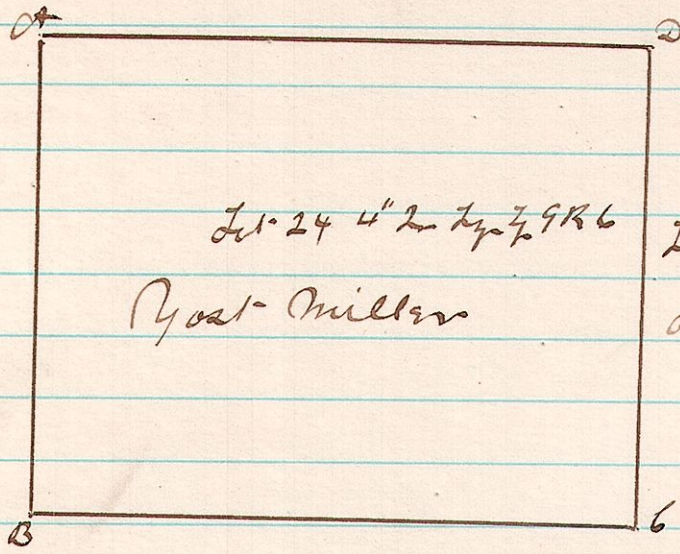 A D
Lot 24 4" Qr Tp 9 R 6
Yost Miller
B C